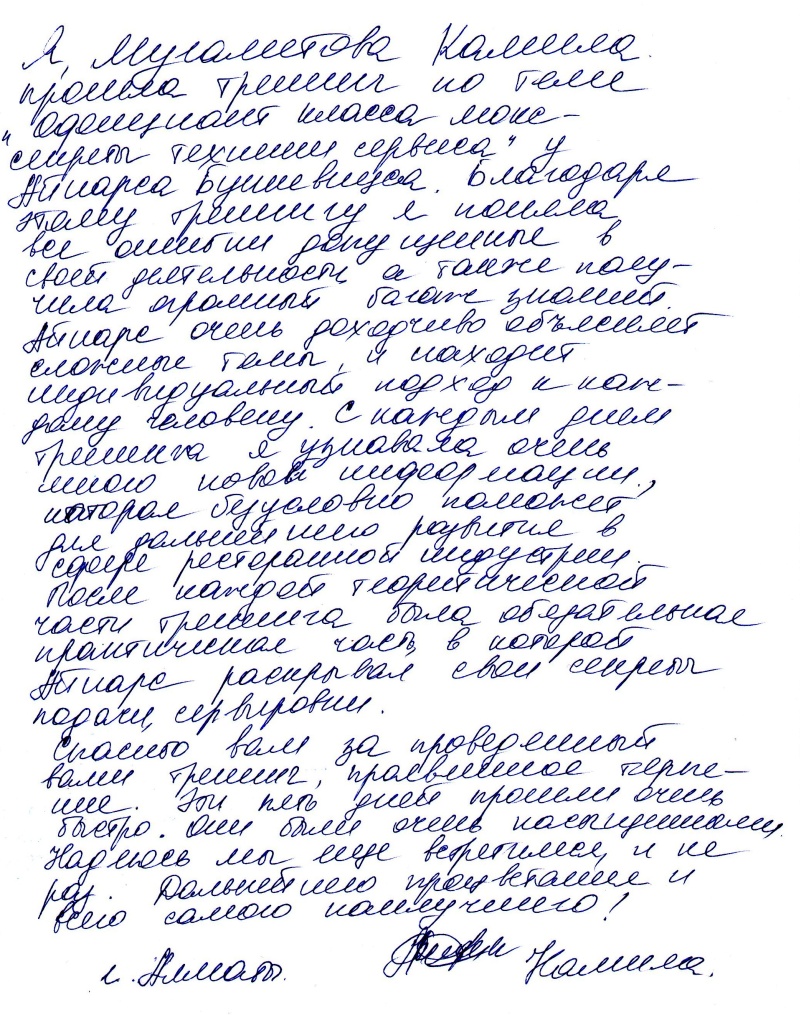 Я, Мугаметова Камила.
прошла тренинг по теме
"Официант класса люкс-
секреты техники сервиса" у
Айнарса Бушевицса. Благодаря
этому тренингу я поняла
все ошибки допущенные в
своей деятельности, а также полу-
чила огромный багаж знаний.
Айнарс очень доходчиво объясняет
сложные темы, и находит
индивидуальный подход к каж-
дому человеку. С каждым днем
тренинга я узнавала очень
много новой информации,
которая безусловно поможет
для дальнейшего развития в
сфере ресторанной индустрии.
После каждой теоритической
части тренинга была обязательная
практическая часть, в которой
Айнарс раскрывал свои секреты
подачи, сервировки.
Спасибо вам за проведенный
вами тренинг, проявленное терпе-
ние. Эти пять дней прошли очень
быстро. Они были очень насыщенными.
Надеюсь мы еще встретимся, и не
раз. Дальнейшего процветания и
всего самого наилучшего!
г. Алматы. Камила.